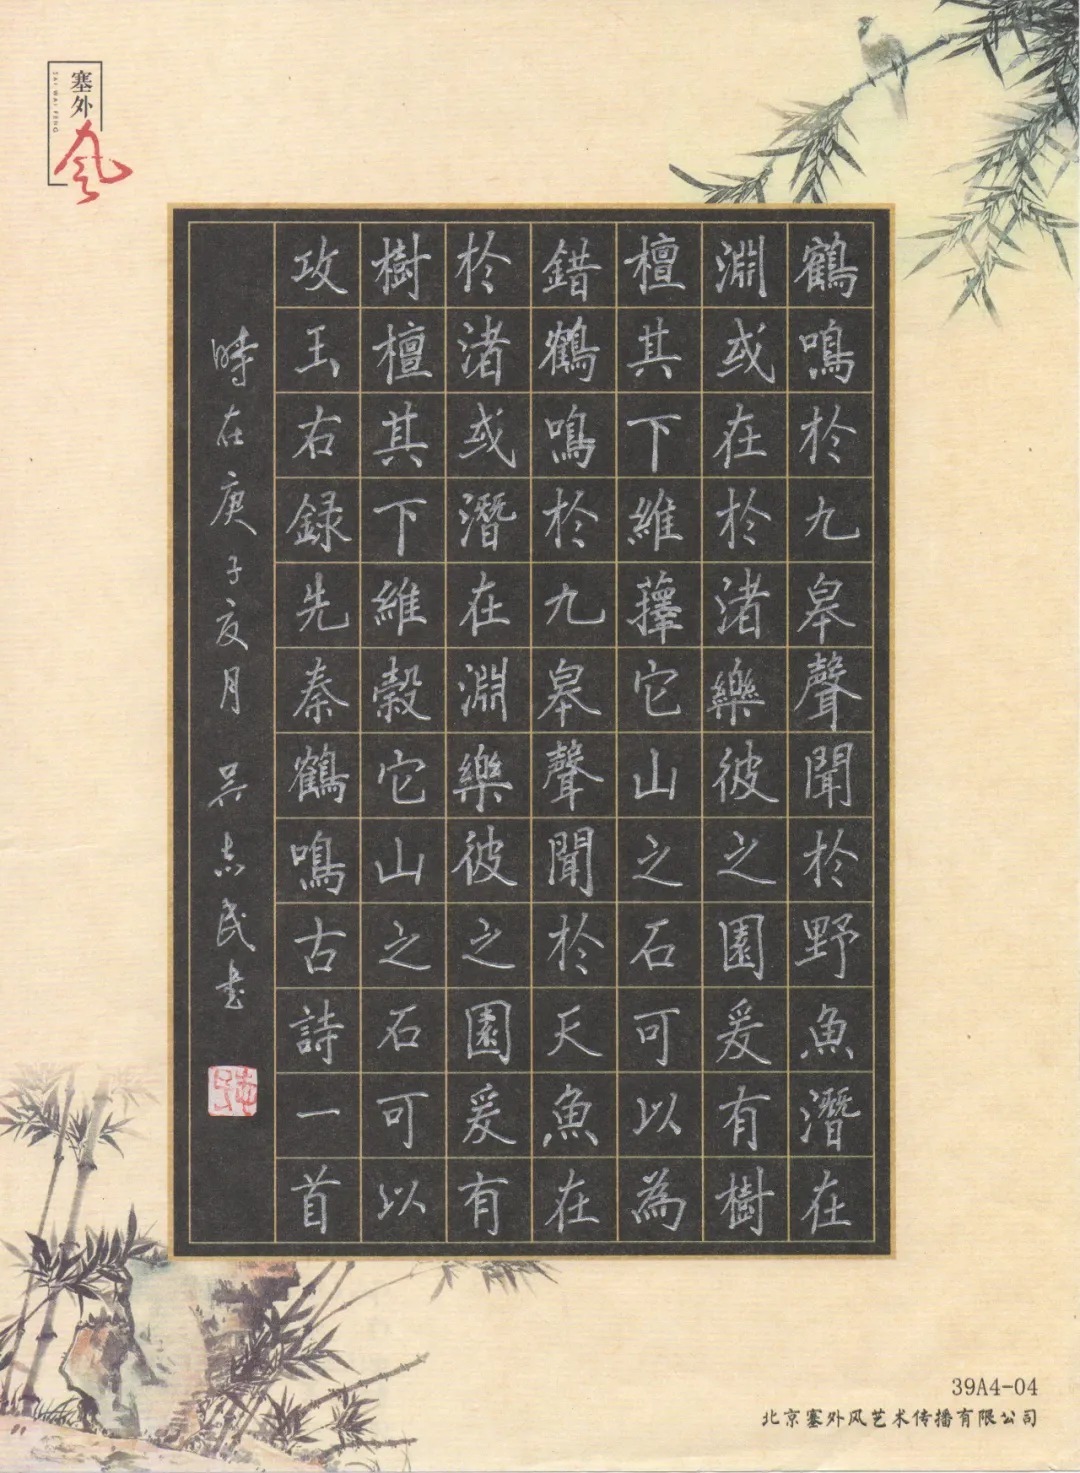 塞外
风
SAI WAI FENG
鶴鳴於九皋聲聞於野魚潛在
淵或在於渚樂彼之園爰有樹
檀其下維蘀它山之石可以為
錯鶴鳴於九皋聲聞於天魚在
於渚或潛在淵樂彼之園爰有
樹檀其下維穀它山之石可以
攻玉右録先秦鶴鳴古詩一首
時在庚子亥月 吴志民书
39A4-04
北京塞外风艺术传播有限公司